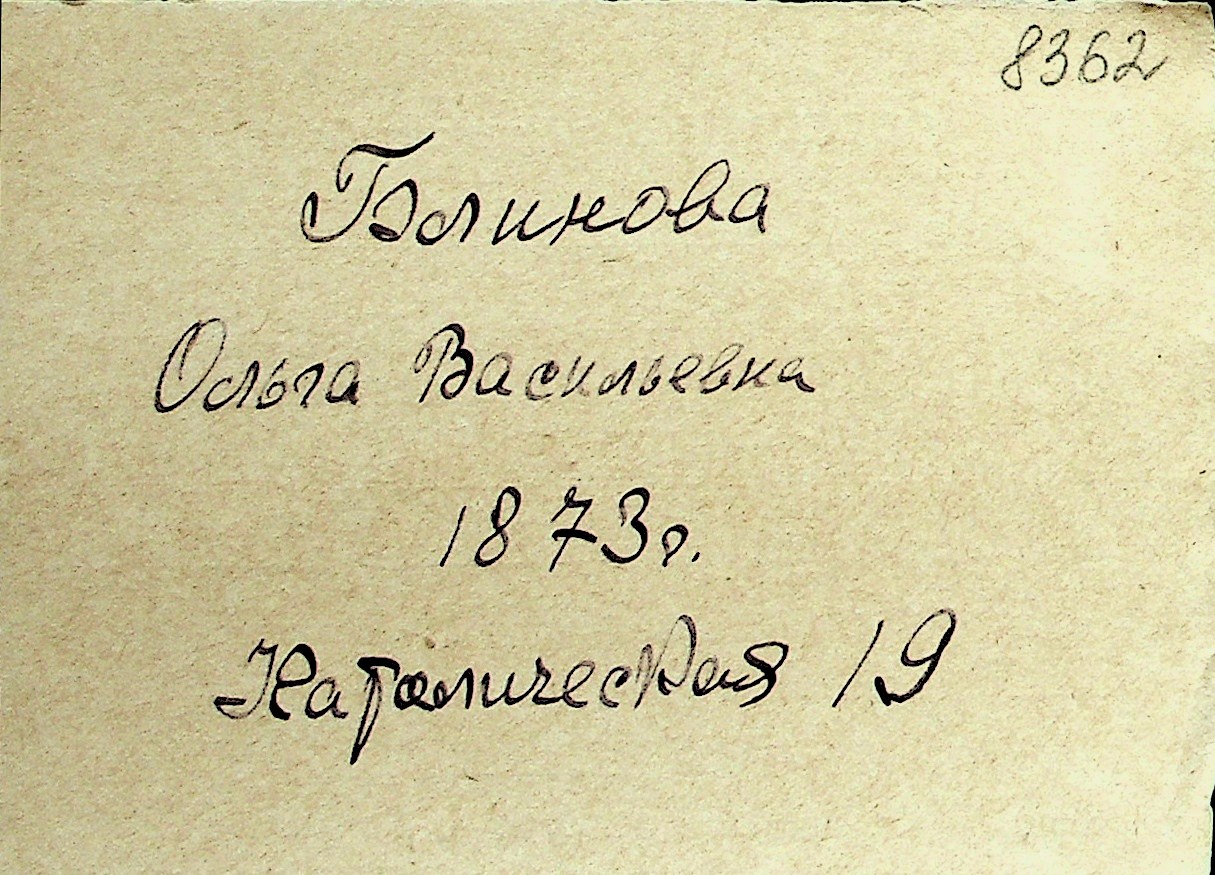 8362
Блинова
Ольга Васильевна
1873г.
Католическая 19